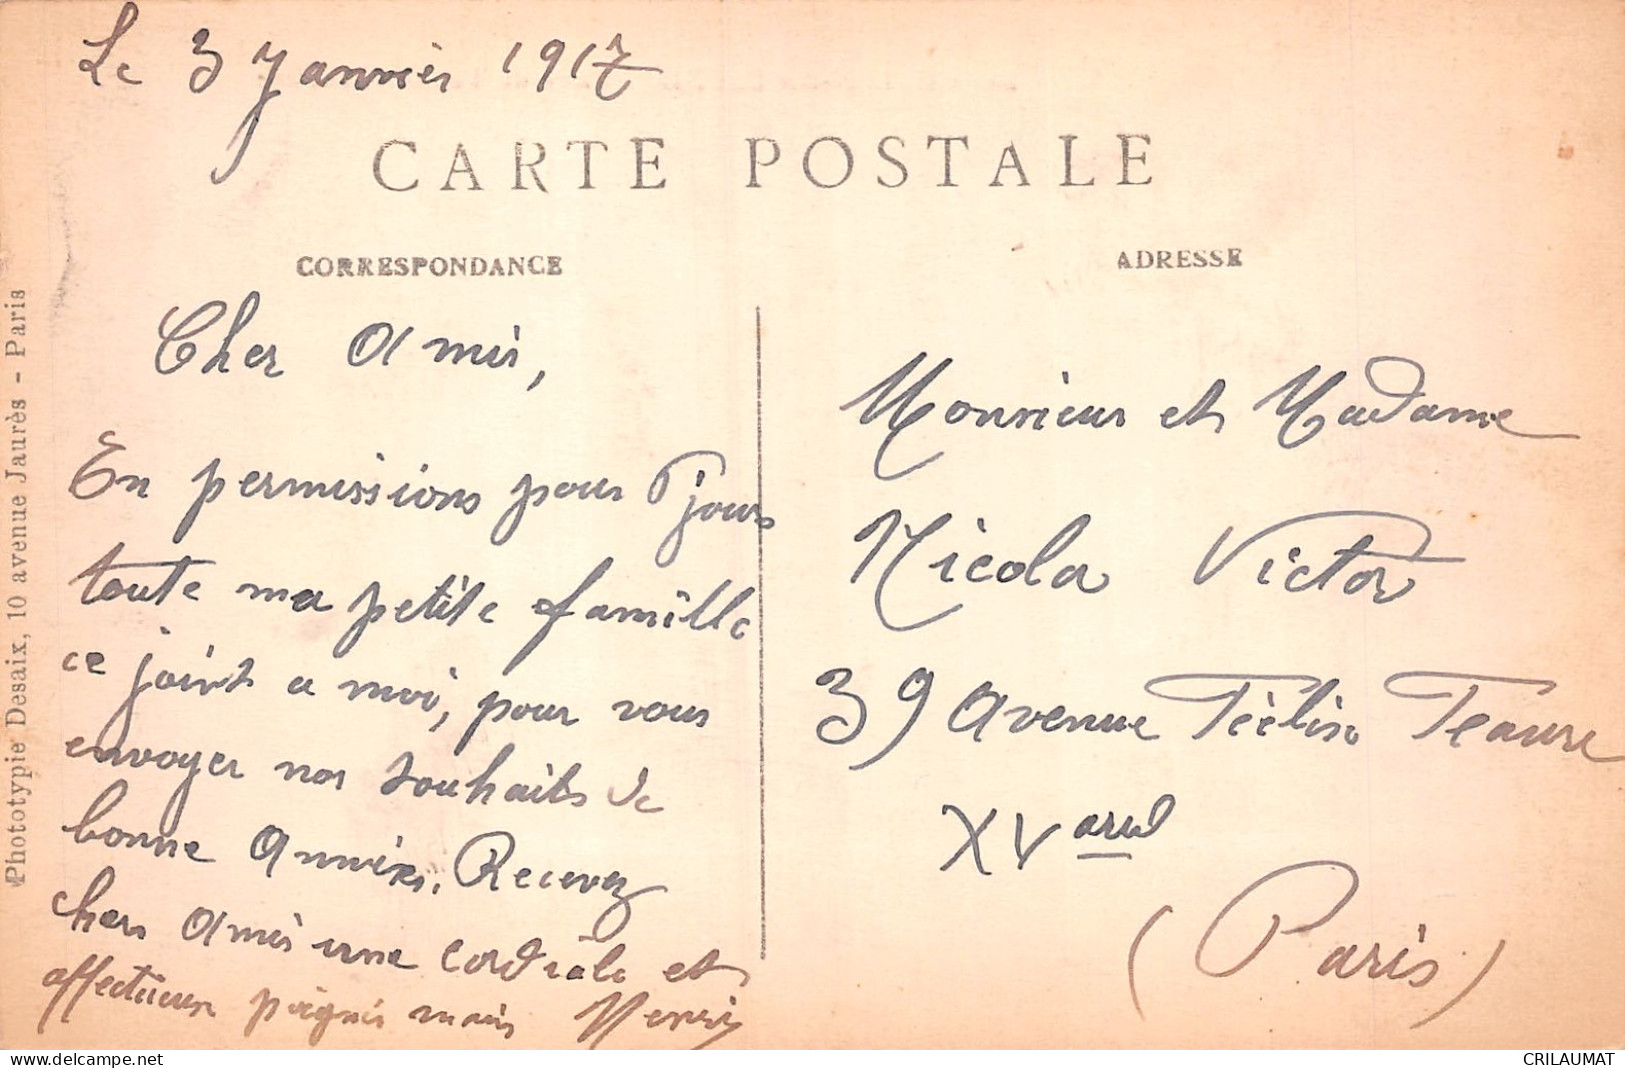 Le 3 Janvier 1917
CARTE POSTALE
CORRESPONDANCE
ADRESSE
Cher Amis,
En permissions pour 7 jours
toute ma petite famille
ce joint a moi, pour vous
envoyer nos souhaits de
bonne Année. Recevez
chers Amis une cordiale et
affectueuse poignés mais Henri
Monsieur et Madame
Nicola Victor
39 Avenue Feelix Feaure
XV arrd
(Paris)
Phototypie Desaix, 10 avenue Jaurès - Paris
CRILAUMAT
delcampe.net